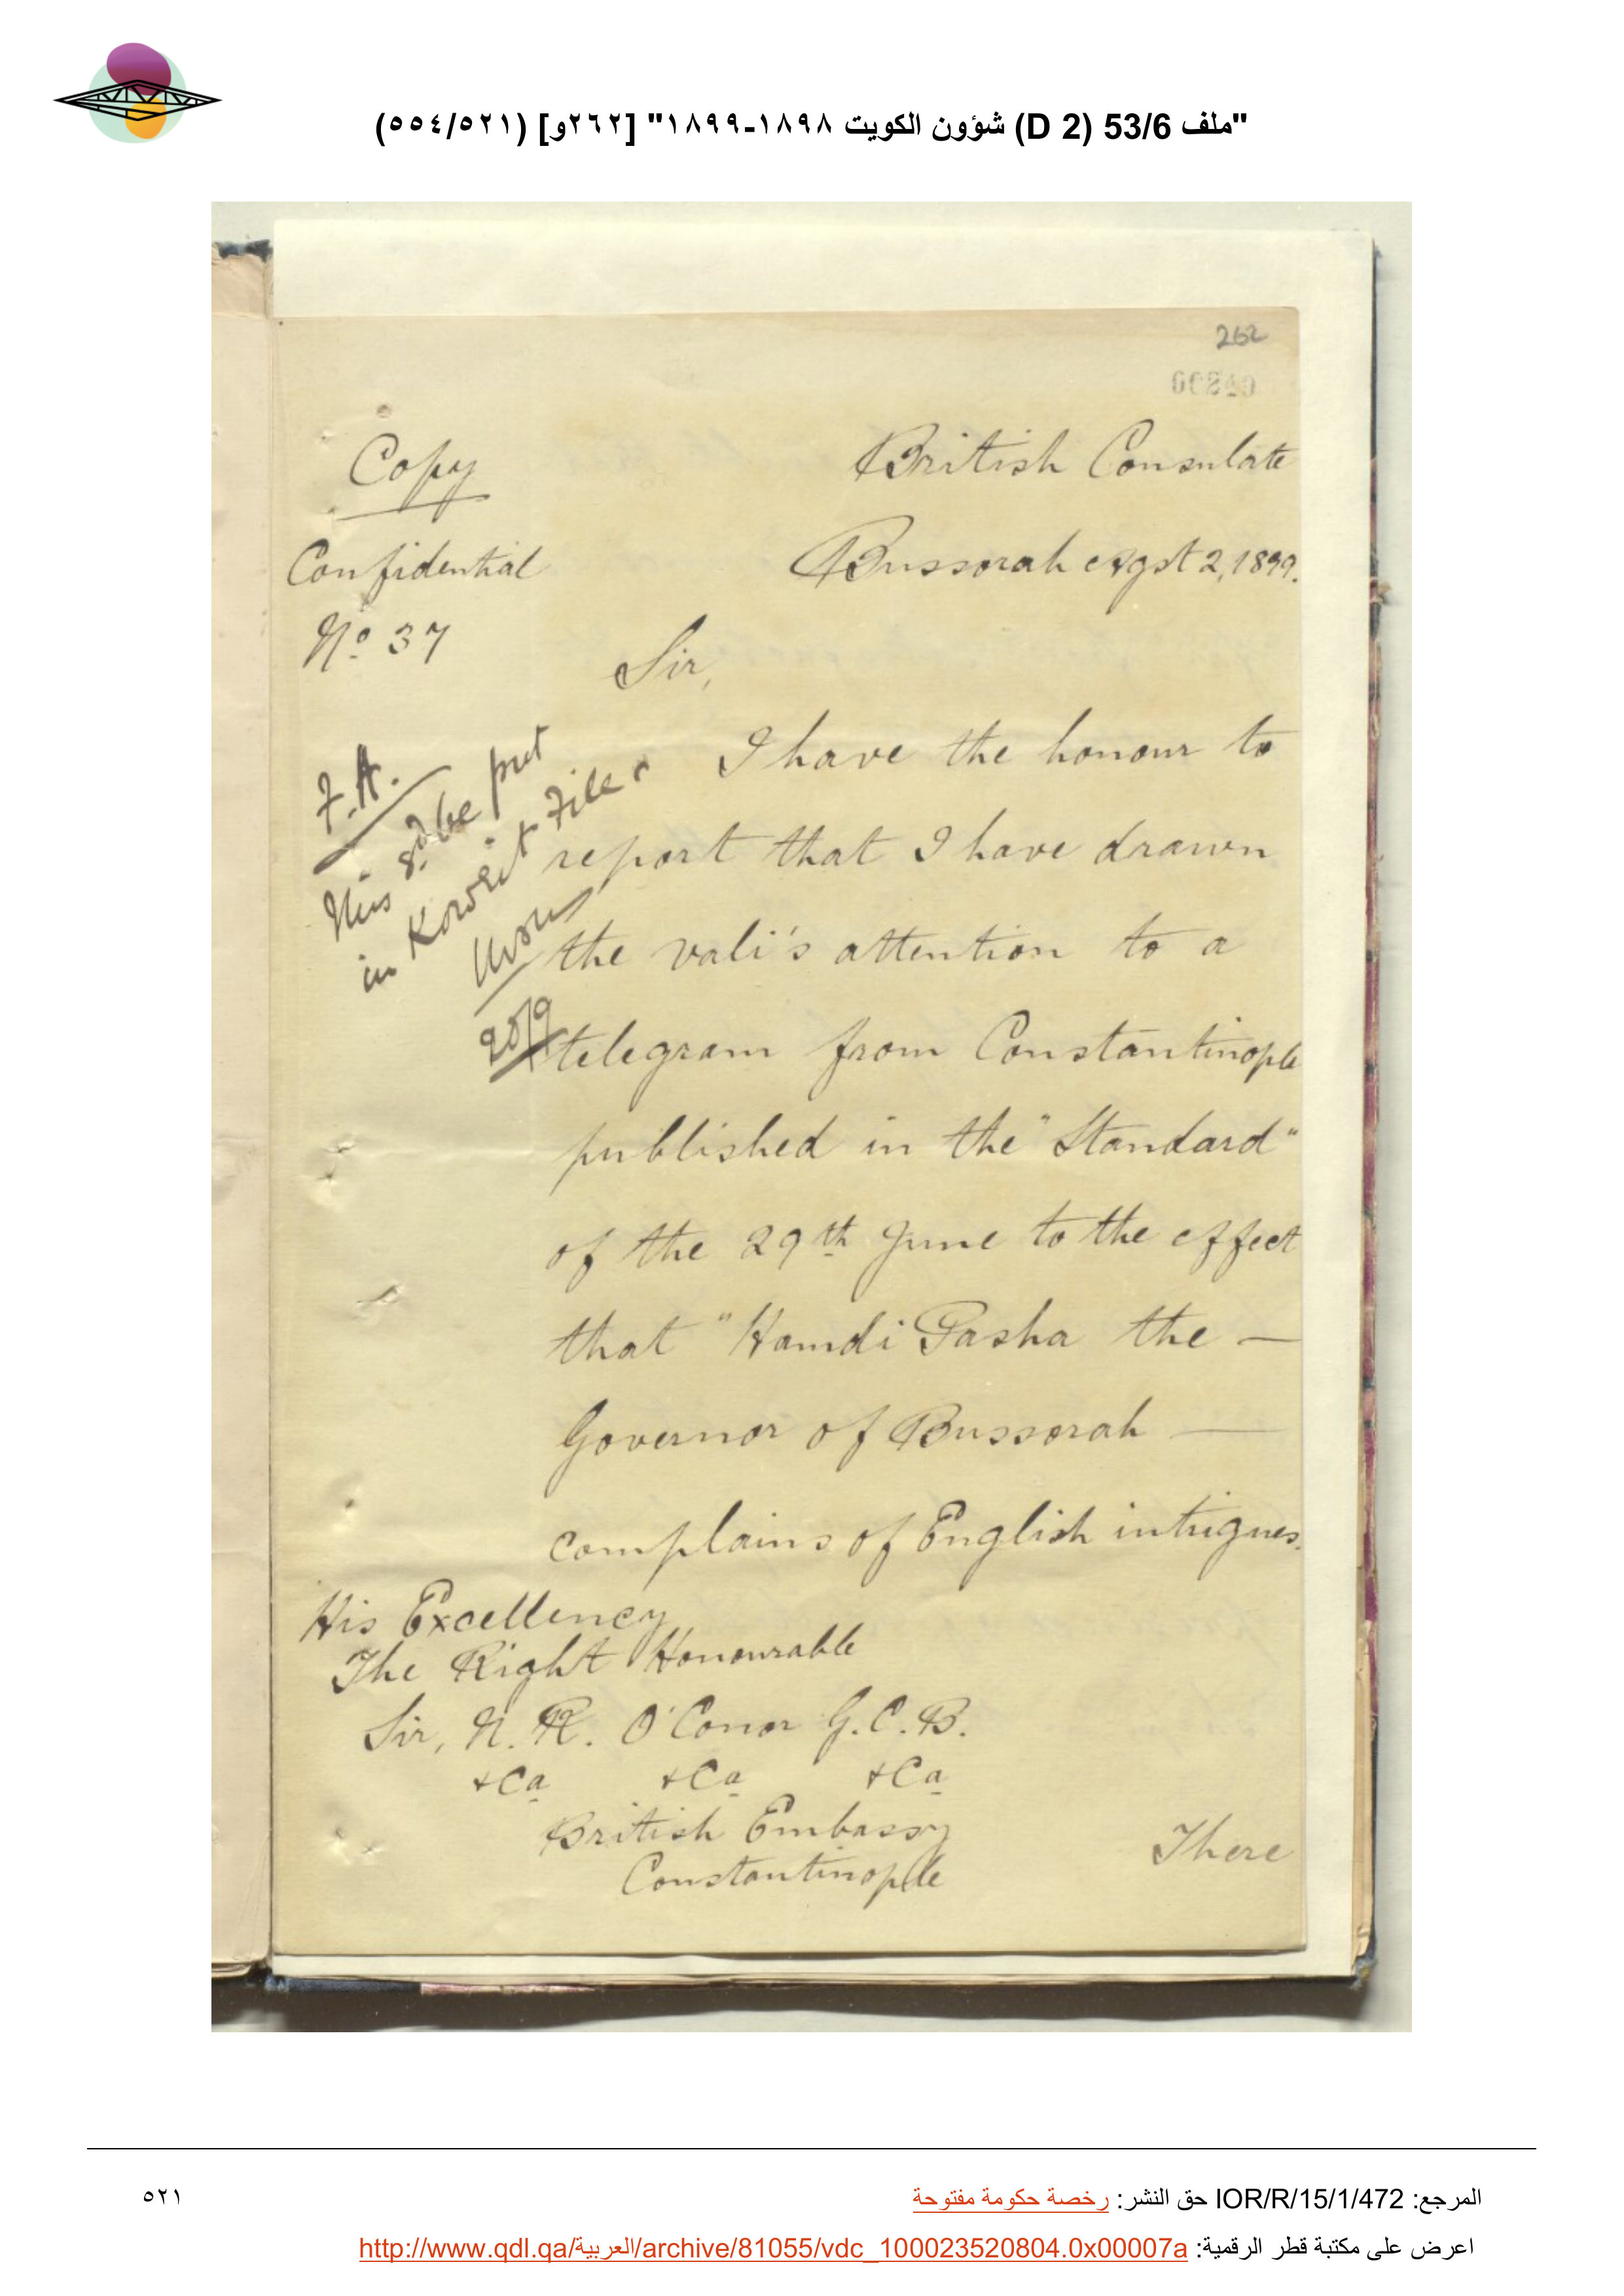 "ملف 53/6 (D 2) شؤون الكويت ١٨٩٨-١٨٩٩" [٢٦٢و] (٥٥٤/٥٢١)
262
Copy
British Consulate
Confidential
Bussorah Agst 2, 1899.
Nº 37
Sir,
F.A.
This sd be put
in Koweit File
20/9
I have the honour to
report that I have drawn
the vali's attention to a
telegram from Constantinople
published in the "Standard"
of the 29th June to the effect
that "Hamdi Pasha the —
Governor of Bussorah —
complains of English intrigues.
His Excellency
The Right Honourable
Sir, N. R. O'Conor G.C.B.
&Ca &Ca &Ca
British Embassy
Constantinople
There
المرجع: IOR/R/15/1/472 حق النشر: رخصة حكومة مفتوحة
٥٢١
اعرض على مكتبة قطر الرقمية: http://www.qdl.qa/العربية/archive/81055/vdc_100023520804.0x00007a